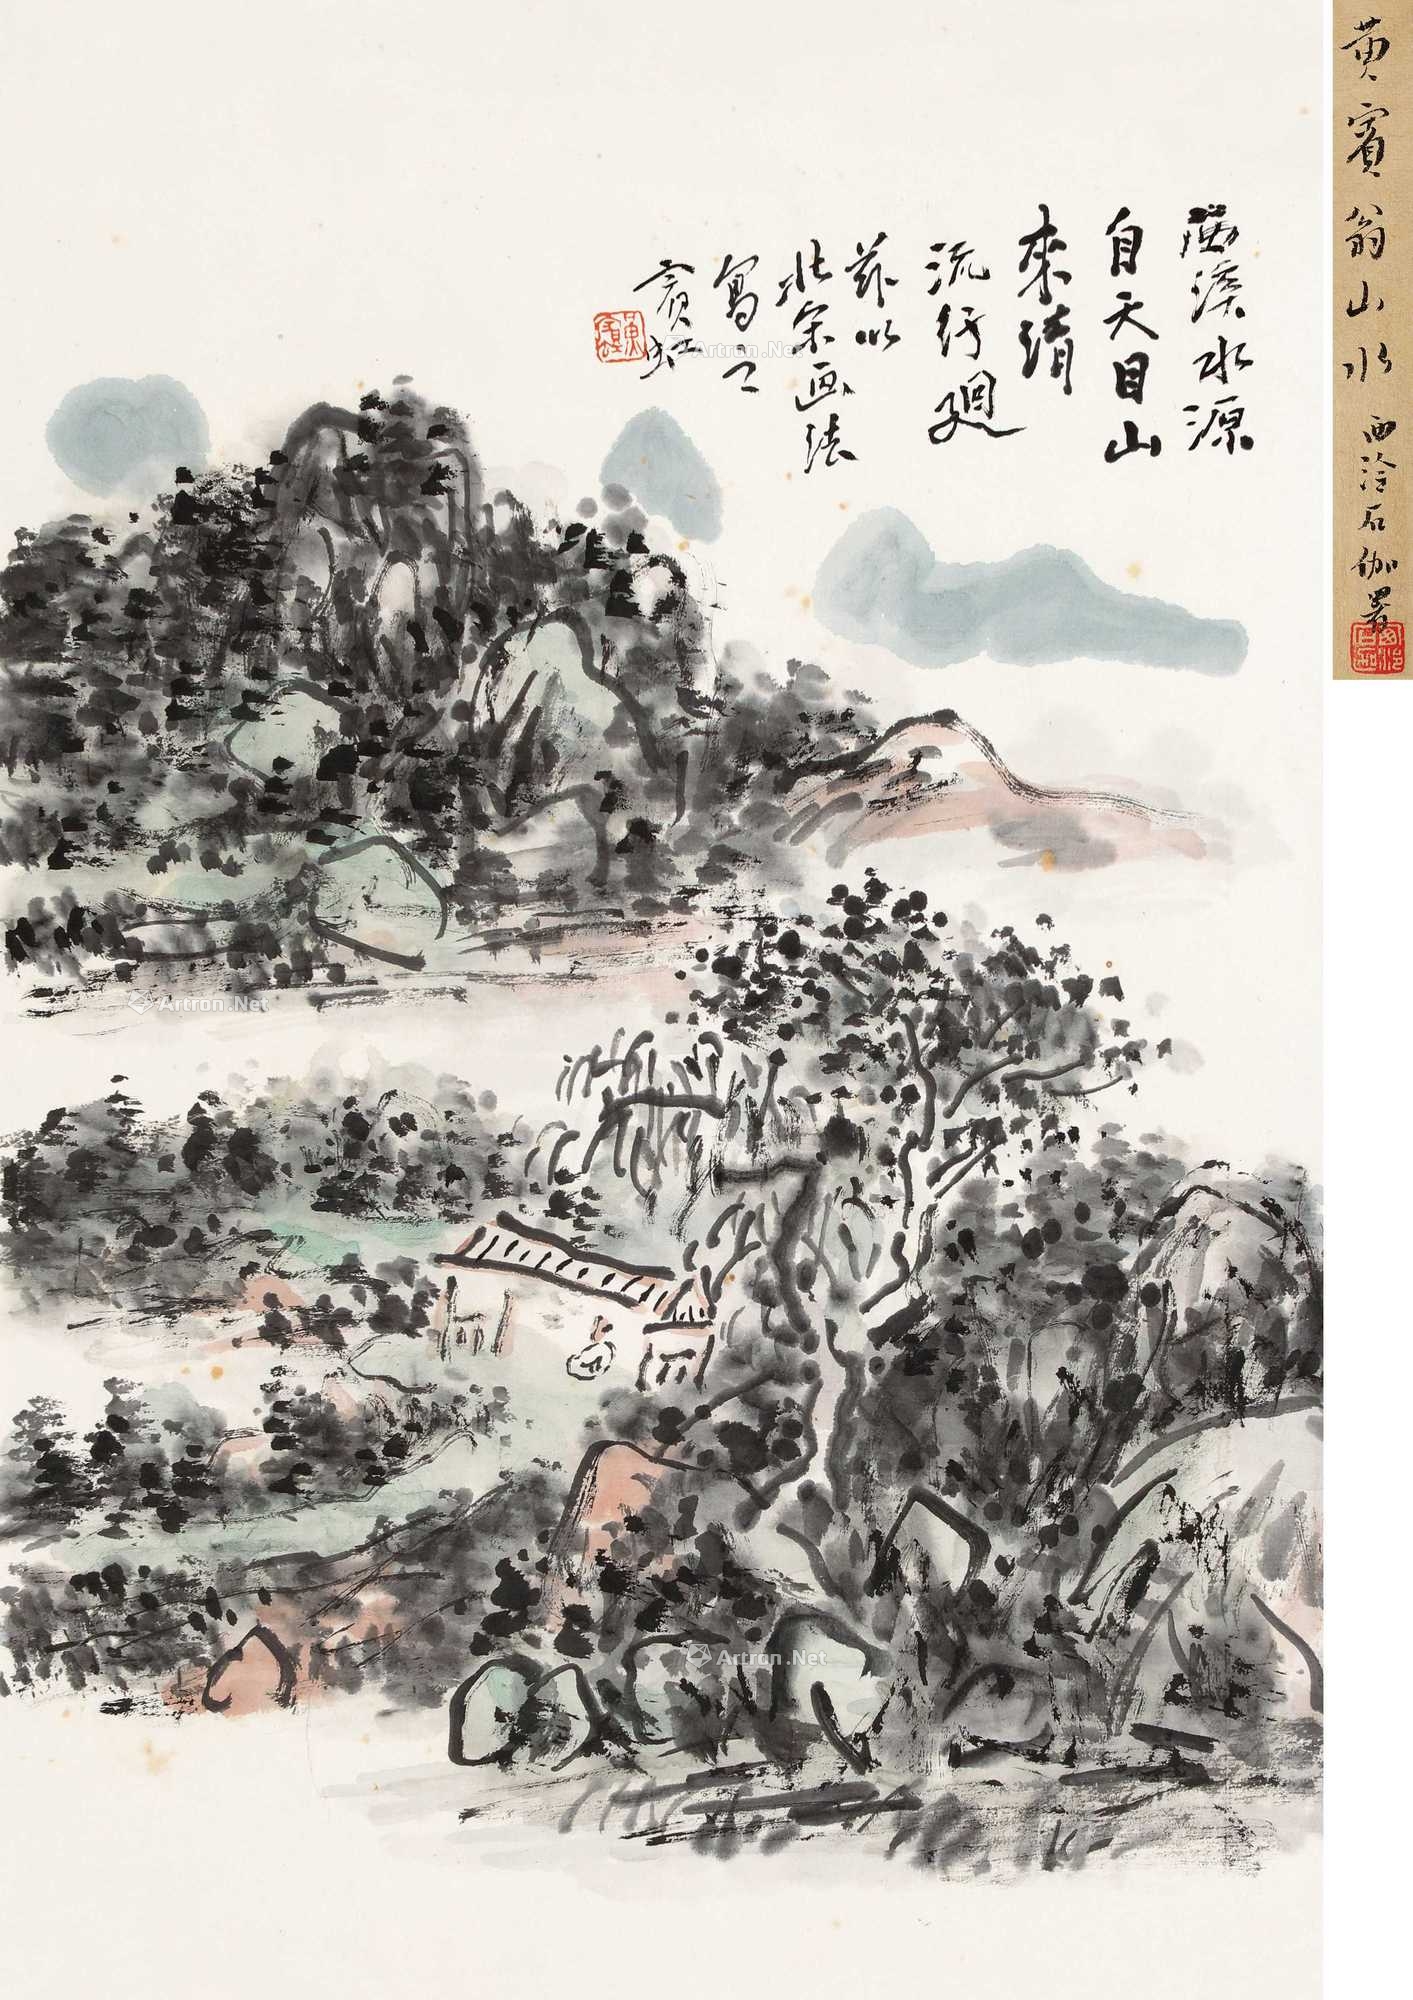 西溪水源
自天目山
來清
流紆迴
茲以
北宋画法
寫之
賓虹
黄賓翁山水
西泠石伽署
Artron.Net
Artron.Net
Artron.Net